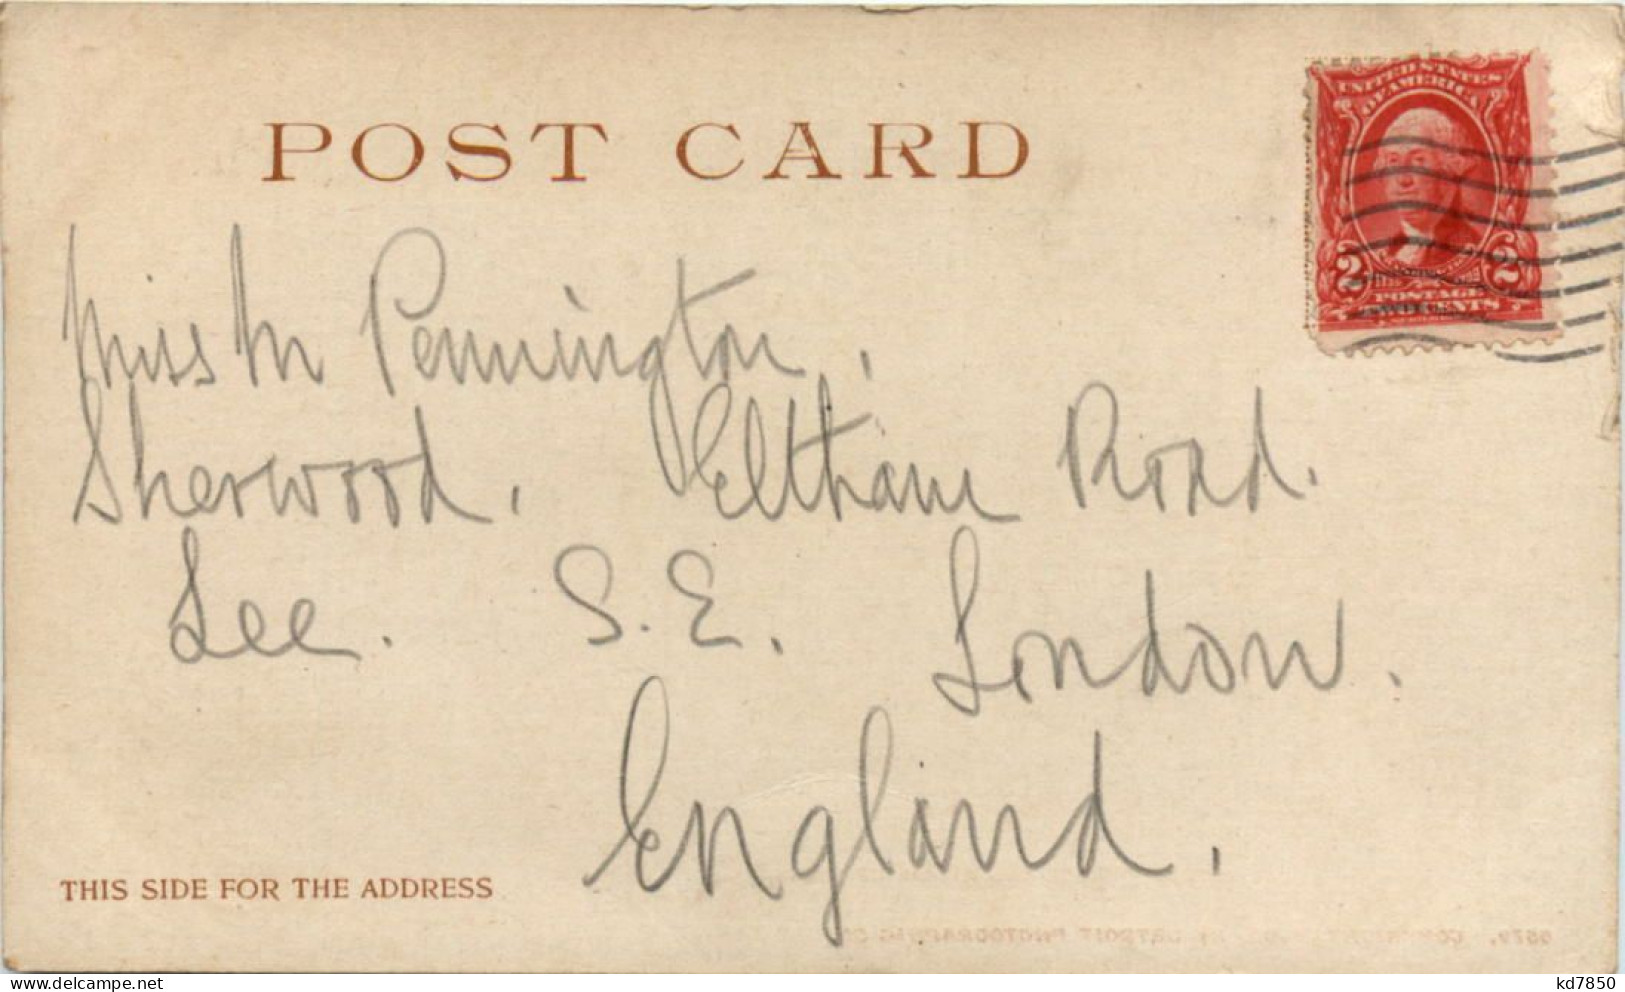 POST CARD
UNITED STATES
OF AMERICA
2 2
POSTAGE
TWO CENTS
Miss M Pennington,
Sherwood. Eltham Road.
Lee. S.E. London.
England.
THIS SIDE FOR THE ADDRESS
DETROIT PHOTOGRAPHIC CO
kd7850